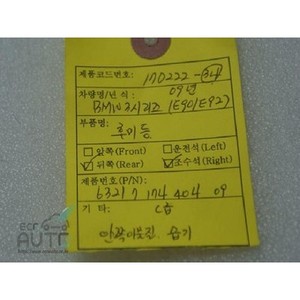 제품코드번호: 170222-34
차량명/년식: 09년
BMW 3시리즈 (E90/E92)
부품명:
후미등
□앞쪽(Front) □운전석(Left)
☑뒤쪽(Rear) ☑조수석(Right)
제품번호(P/N):
6321 7 174 404 09
기타: C급
안쪽이물질
ecr
AUTO